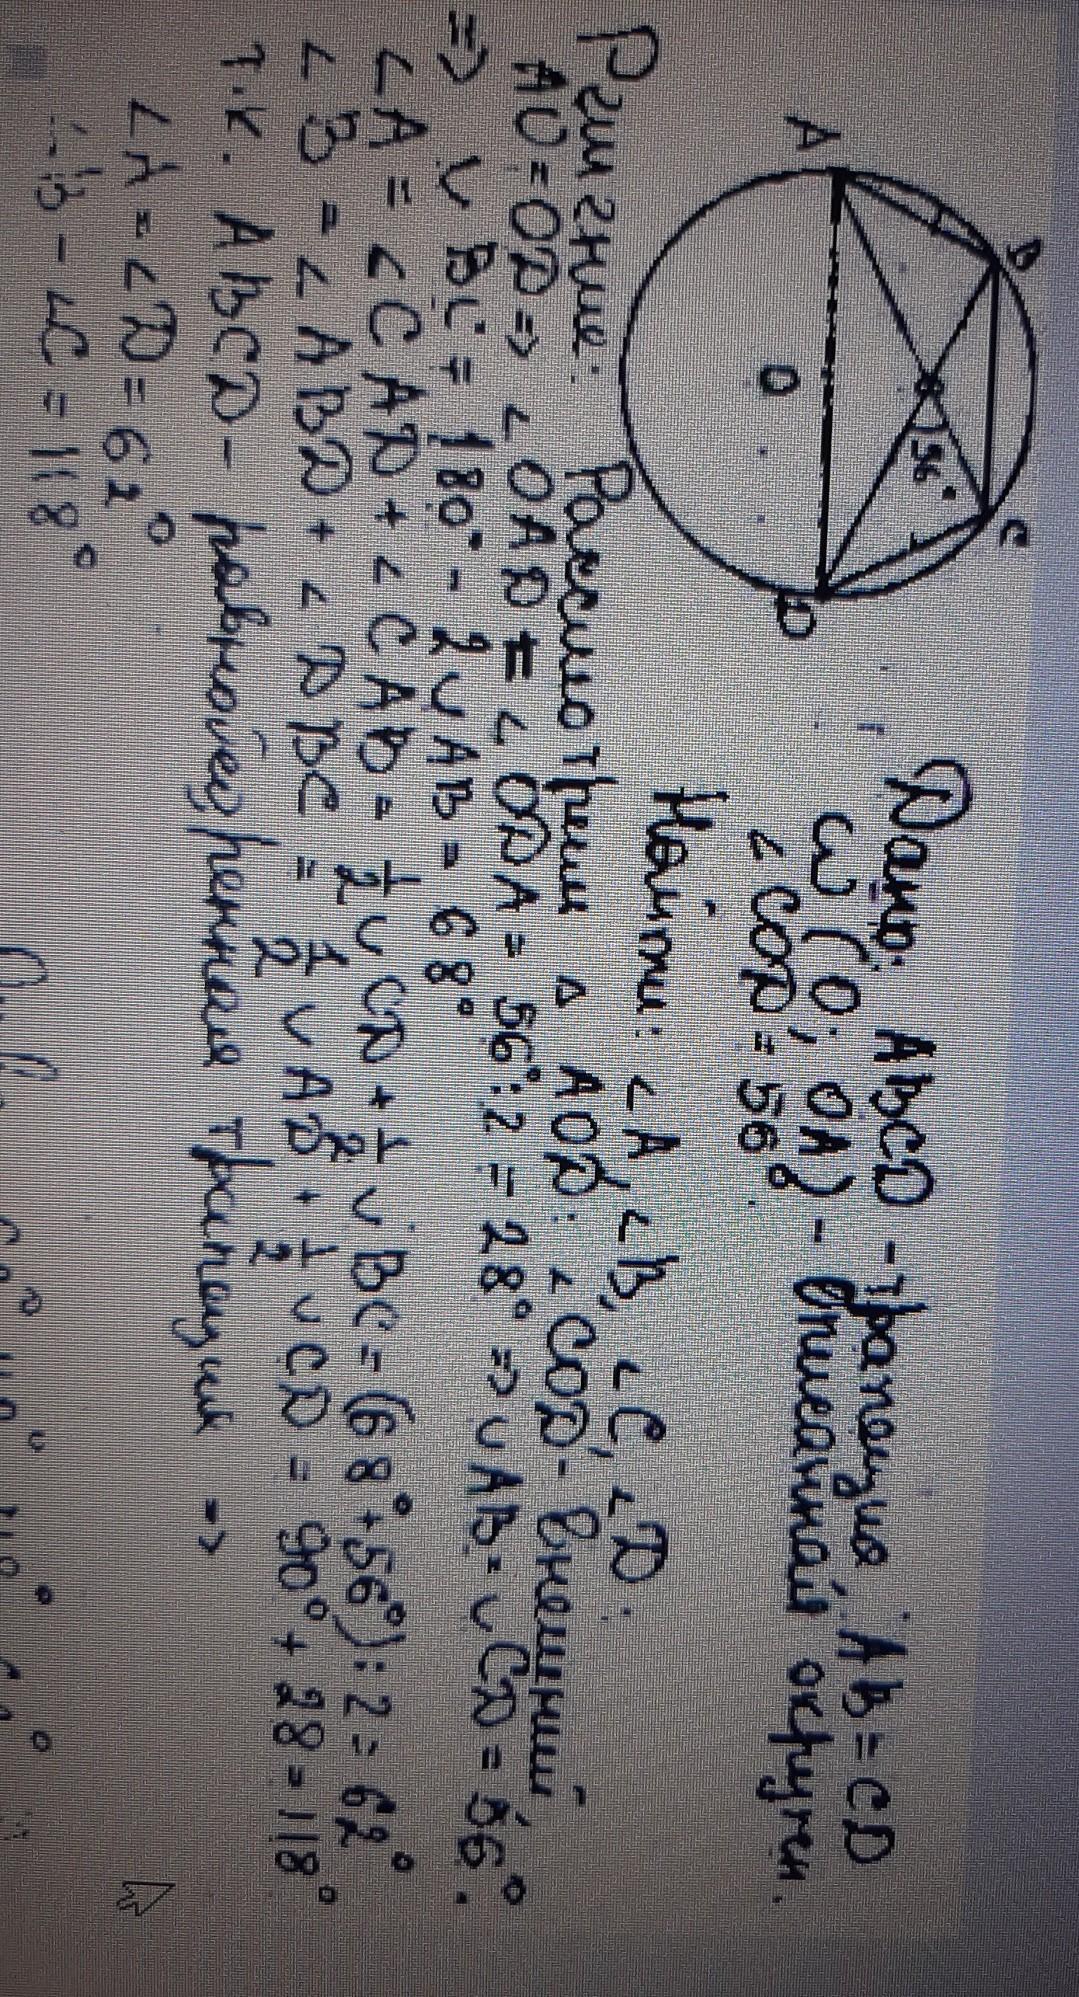 A
B
C
D
O
56°
Дано: ABCD - трапеция AB=CD
ω (O; OA) - вписанный окружн.
∠COD = 56°
Найти: ∠A, ∠B, ∠C, ∠D.
Решение: Рассмотрим △ AOD: ∠COD - внешний
AO = OD => ∠OAD = ∠ODA = 56°:2 = 28° => ∪AB = ∪CD = 56°.
=> ∪ BC = 180° - 2∪AB = 68°
∠A = ∠CAD + ∠CAB = 1/2 ∪CD + 1/2 ∪BC = (68° + 56°):2 = 62°
∠B = ∠ABD + ∠DBC = 1/2 ∪AD + 1/2 ∪CD = 90° + 28 = 118°
т.к. ABCD - равнобедренная трапеция =>
∠A = ∠D = 62°
∠B - ∠C = 118°